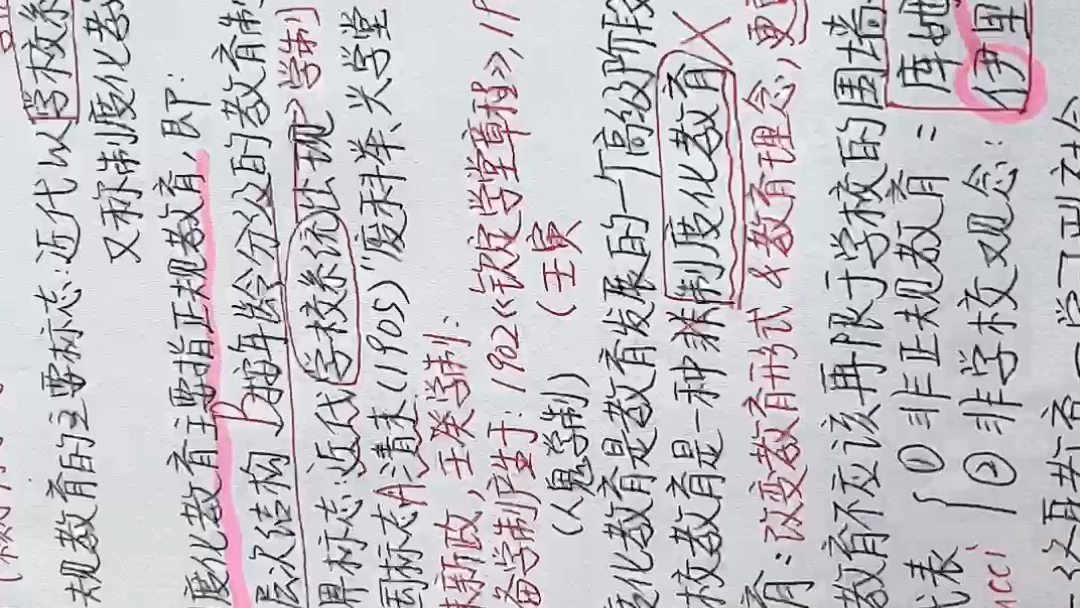 规教育的主要标志:近代以学校系
又称制度化教
度化教育主要指正规教育,即:
层次结构 B按年龄分级的教育制
界标志:近代学校系统出现>学制
国标志A清末(1905)"废科举、兴学堂
新政,壬癸学制:
备学制产生于:1902《钦定学堂章程》,19
(人鬼学制) (壬寅
度化教育是教育发展的一个高级阶段
校教育是一种 制度化教育 ×
育:改变教育形式&教育理念,更
教育不应该再限于学校的围墙
代表 { ①非正规教育= 库姆
②非学校观念: 伊里